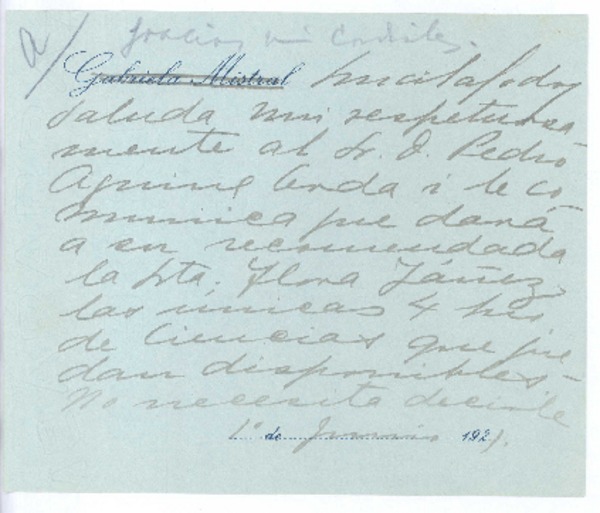 a/ Gracias mui cordiales.
Gabriela Mistral Lucila Godoy
saluda mui respetuosa
mente al Sr. D. Pedro
Aguirre Cerda i le co
munica que dará
a su recomendada
la Srta. Flora Yáñez
las únicas 4 hrs
de Ciencias que que
dan disponibles–
No necesita decirle
1º de Junio 1921.